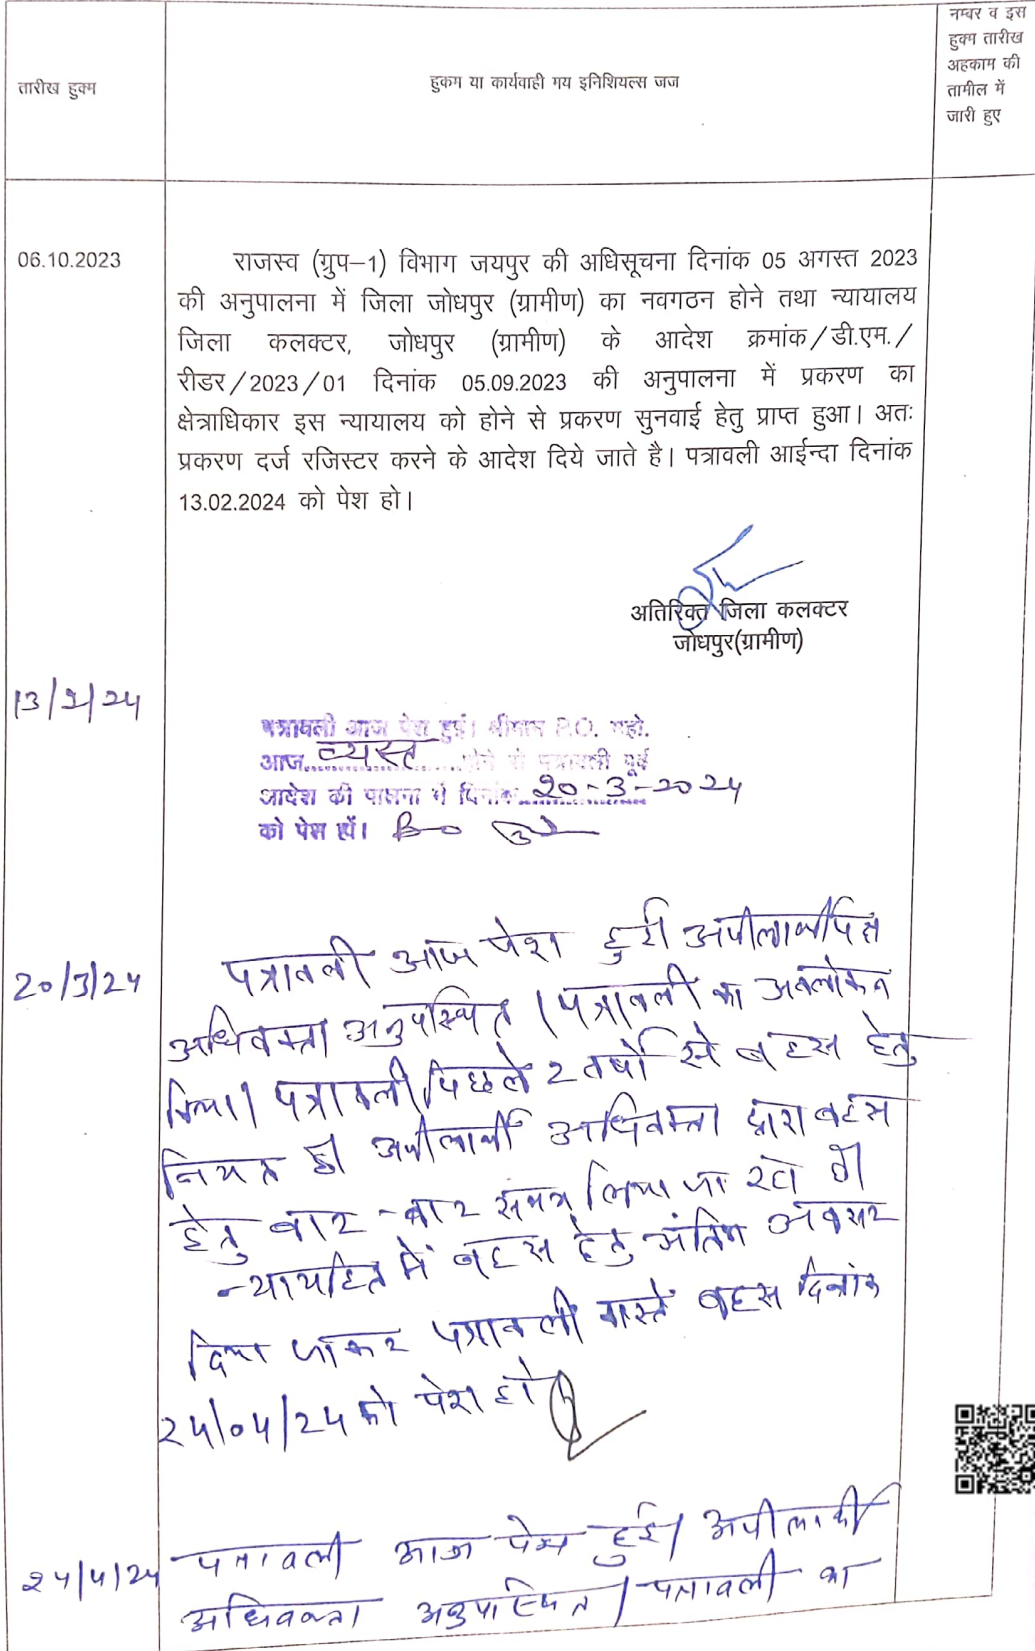 तारीख हुक्म
हुकम या कार्यवाही मय इनिशियल्स जज
नम्बर व इस
हुक्म तारीख
अहकाम की
तामील में
जारी हुए
06.10.2023
राजस्व (ग्रुप–1) विभाग जयपुर की अधिसूचना दिनांक 05 अगस्त 2023
की अनुपालना में जिला जोधपुर (ग्रामीण) का नवगठन होने तथा न्यायालय
जिला कलक्टर, जोधपुर (ग्रामीण) के आदेश क्रमांक/डी.एम./
रीडर/2023/01 दिनांक 05.09.2023 की अनुपालना में प्रकरण का
क्षेत्राधिकार इस न्यायालय को होने से प्रकरण सुनवाई हेतु प्राप्त हुआ। अतः
प्रकरण दर्ज रजिस्टर करने के आदेश दिये जाते है। पत्रावली आईन्दा दिनांक
13.02.2024 को पेश हो।
अतिरिक्त जिला कलक्टर
जोधपुर(ग्रामीण)
13/2/24
पत्रावली आज पेश हुई। श्रीमान P.O. महो.
आज व्यस्त होने से पत्रावली पूर्व
आदेश की पालना में दिनांक 20-3-2024
को पेश हों।
20/3/24
पत्रावली आज पेश हुई
अधिवक्ता अनुपस्थित। पत्रावली का अवलोकन
किया। पत्रावली पिछले 2 वर्षों से बहस हेतु
नियत है। अपीलार्थी अधिवक्ता द्वारा बहस
हेतु बार-बार समय लिया जा रहा है।
न्यायहित में बहस हेतु अंतिम अवसर
दिया जाकर पत्रावली वास्ते बहस दिनांक
24/04/24 को पेश हो
24/4/24
पत्रावली आज पेश हुई। अपीलार्थी
अधिवक्ता अनुपस्थित। पत्रावली का